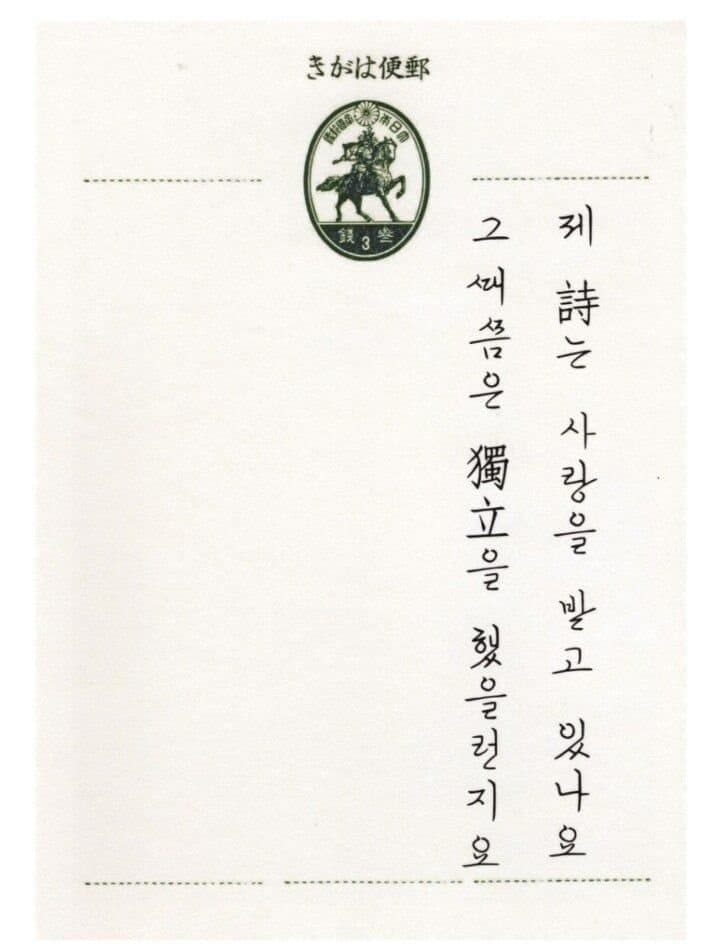 郵便はがき
大日本帝國郵便
叄 3 錢
제 詩는 사랑을 받고 있나요
그 때쯤은 獨立을 했을런지요